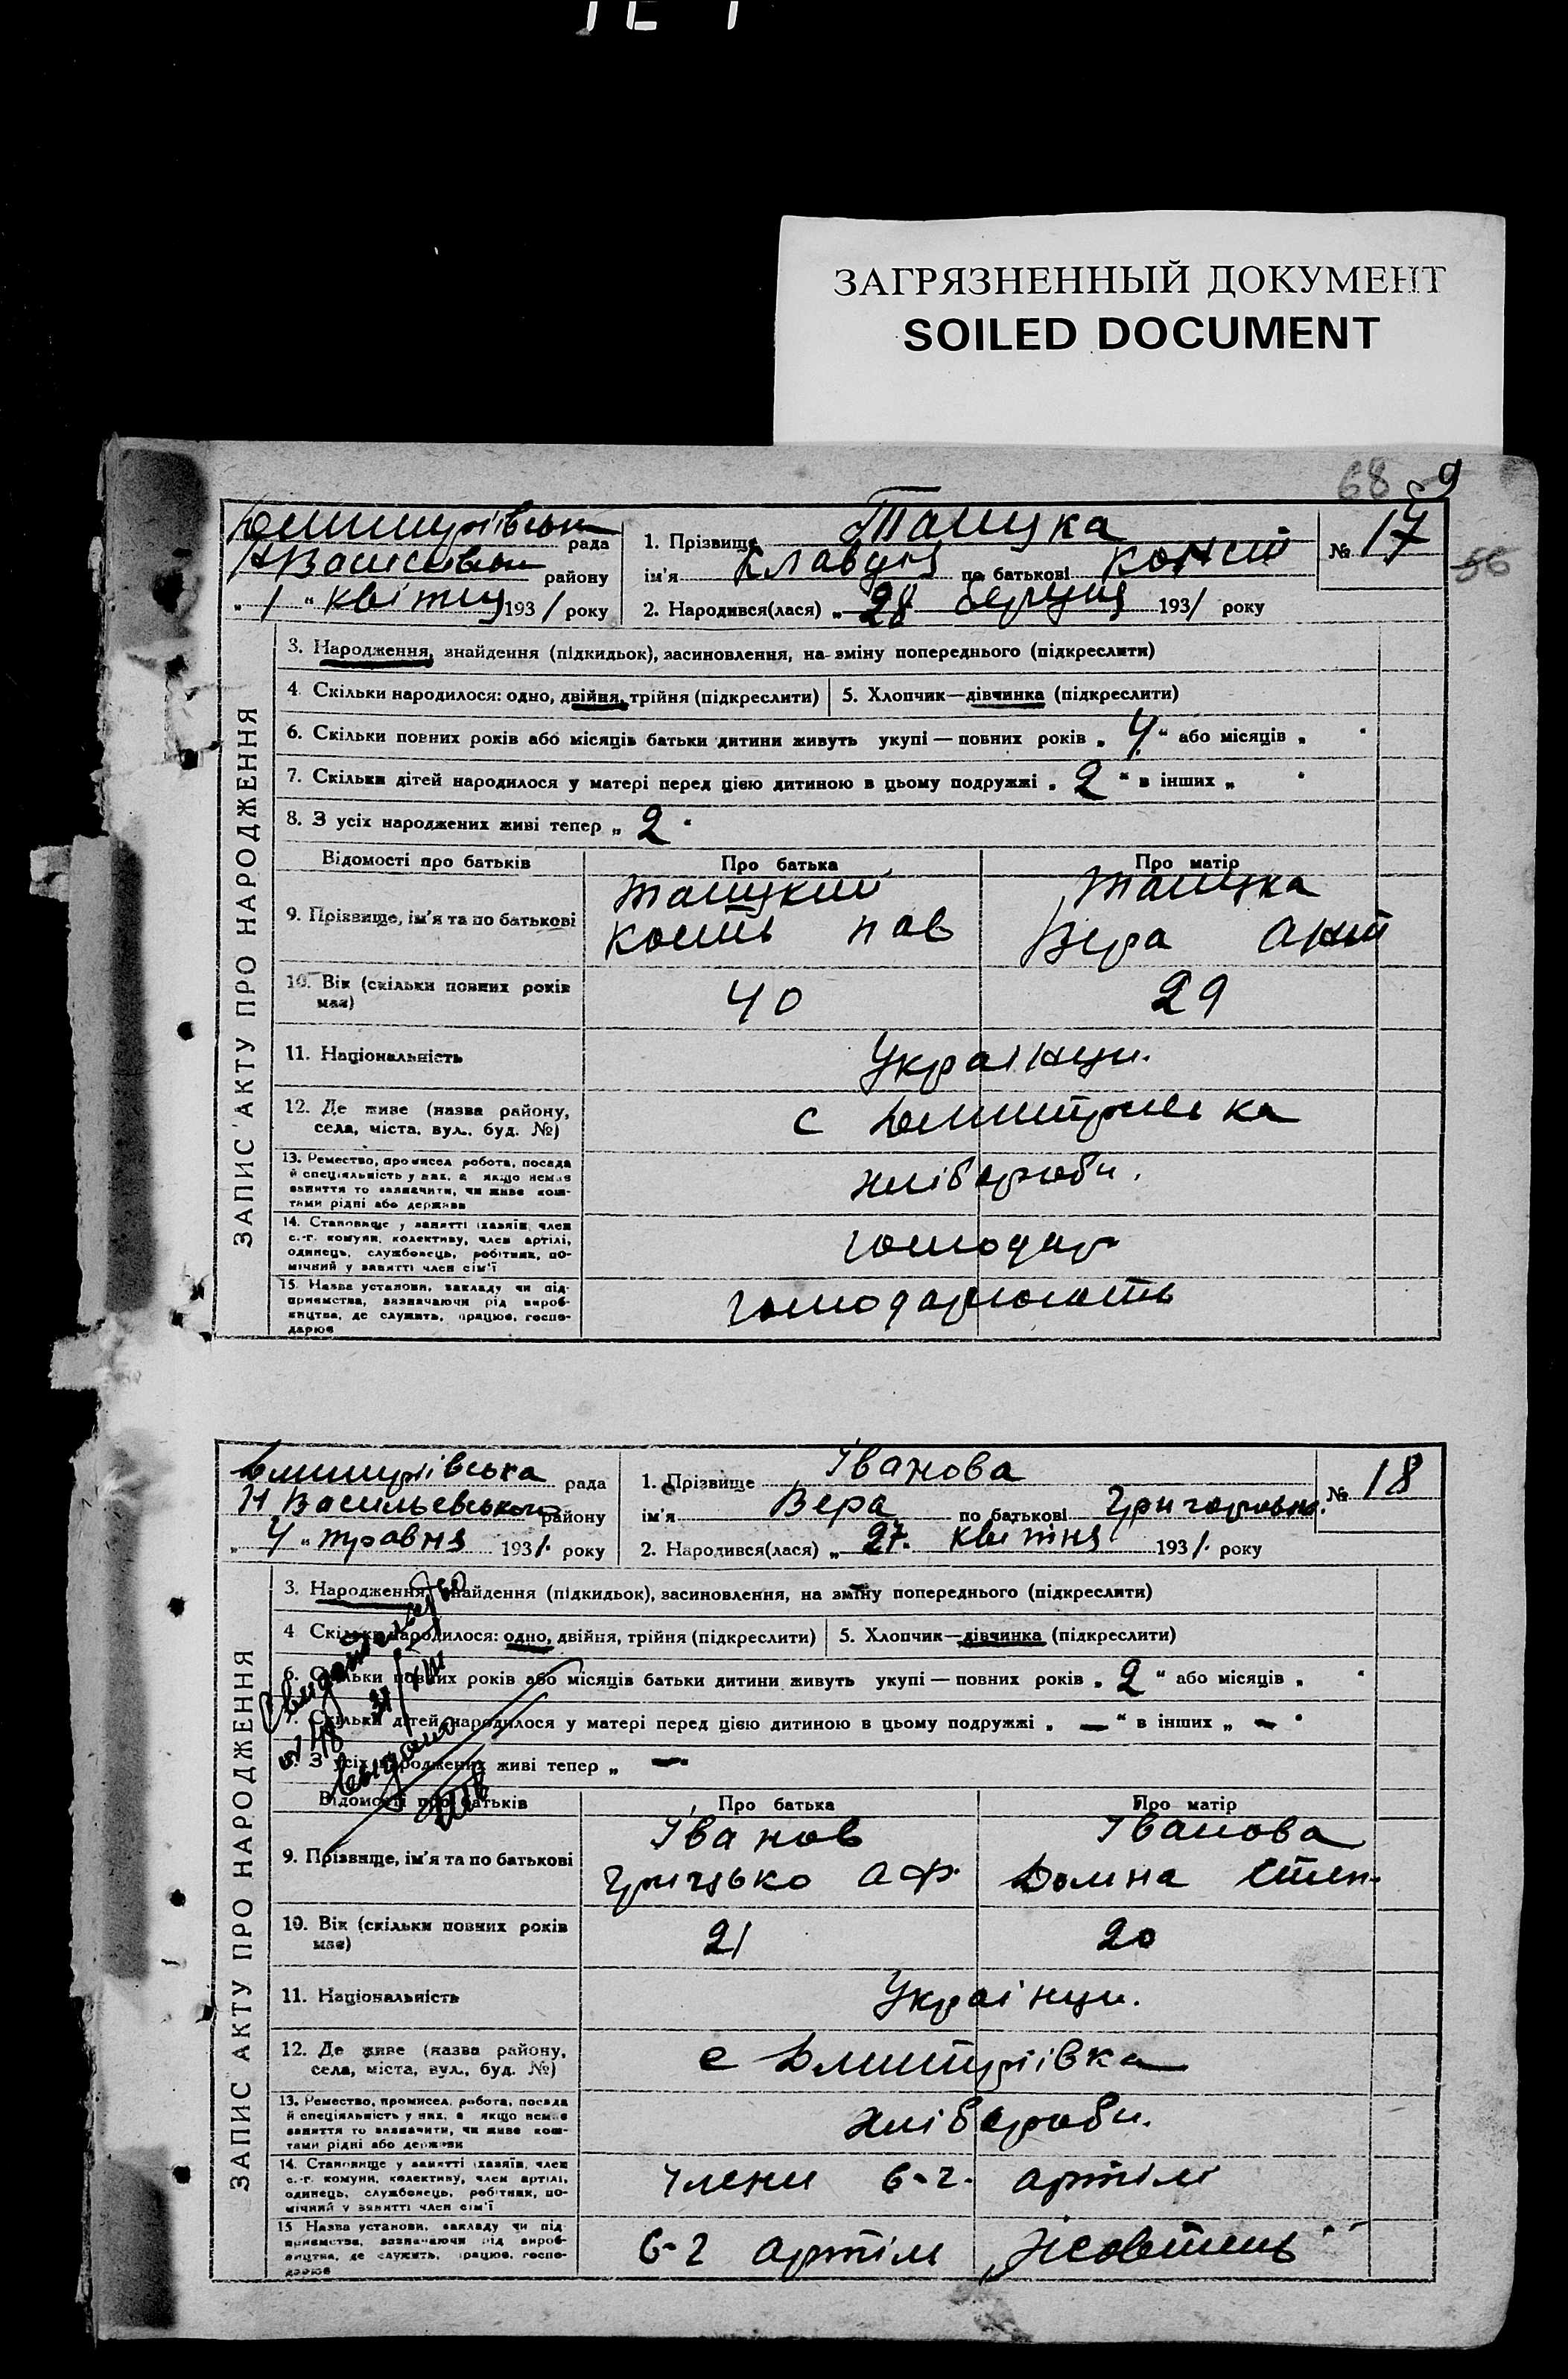 ЗАГРЯЗНЕННЫЙ ДОКУМЕНТ
SOILED DOCUMENT
68 9
56
ЗАПИС АКТУ ПРО НАРОДЖЕННЯ
Дмитрівськ рада
Н Васильівськ району
„ 1 “ квітня 1931 року
1. Прізвище
ім'я Клавдія по батькові Конст
№ 17
2. Народився(лася) „ 28 березня 1931 року
3. Народження, знайдення (підкидьок), засиновлення, на зміну попереднього (підкреслити)
4 Скільки народилося: одно, двійня, трійня (підкреслити) 5. Хлопчик—дівчинка (підкреслити)
6. Скільки повних років або місяців батьки дитини живуть укупі — повних років „ 4 “ або місяців „
7. Скільки дітей народилося у матері перед цією дитиною в цьому подружжі „ 2 “ в інших „
8. З усіх народжених живі тепер „ 2
Відомості про батьків Про батька Про матір
9. Прізвище, ім'я та по батькові
Кость Пав Вера Ант
10. Вік (скільки повних років має) 40 29
11. Національність Українци.
12. Де живе (назва району, села, міста, вул., буд. №) с Дмитрієвка
13. Ремество, промисел, робота, посада
й спеціяльність у них, а якщо немає
заняття то зазначити, чи живе кош-
тами рідні або держави
хлібороби.
14. Становище у занятті (хазяїн, член
с.-г. комуни, колективу, член артілі,
одинець, службовець, робітник, по-
мічний у занятті член сім'ї
господар
15. Назва установи, закладу чи під-
приємства, зазначаючи рід вироб-
ництва, де служить, працює, госпо-
дарює
господарюють
ЗАПИС АКТУ ПРО НАРОДЖЕННЯ
Дмитрівська рада
Н Васильевського району
„ 4 “ травня 1931. року
1. Прізвище Іванова
ім'я Вера по батькові Григоровна.
№ 18
2. Народився(лася) „ 27. квітня 1931. року
3. Народження, знайдення (підкидьок), засиновлення, на зміну попереднього (підкреслити)
4 Скільки народилося: одно, двійня, трійня (підкреслити) 5. Хлопчик—дівчинка (підкреслити)
6. Скільки повних років або місяців батьки дитини живуть укупі — повних років „ 2 “ або місяців „
7. Скільки дітей народилося у матері перед цією дитиною в цьому подружжі „ — “ в інших „ —
8. З усіх народжених живі тепер „ —
Відомості про батьків Про батька Про матір
9. Прізвище, ім'я та по батькові Іванов Іванова
Грицько Аф Домна Степ.
10. Вік (скільки повних років має) 21 20
11. Національність Українци.
12. Де живе (назва району, села, міста, вул., буд. №) с Дмитріівка
13. Ремество, промисел, робота, посада
й спеціяльність у них, а якщо немає
заняття то зазначити, чи живе кош-
тами рідні або держави
хлібороби.
14. Становище у занятті (хазяїн, член
с.-г. комуни, колективу, член артілі,
одинець, службовець, робітник, по-
мічний у занятті член сім'ї
члени с-г. артілі
15 Назва установи, закладу чи під-
приємства, зазначаючи рід вироб-
ництва, де служить, працює, госпо-
дарює
с-г артіли „Жовтень“